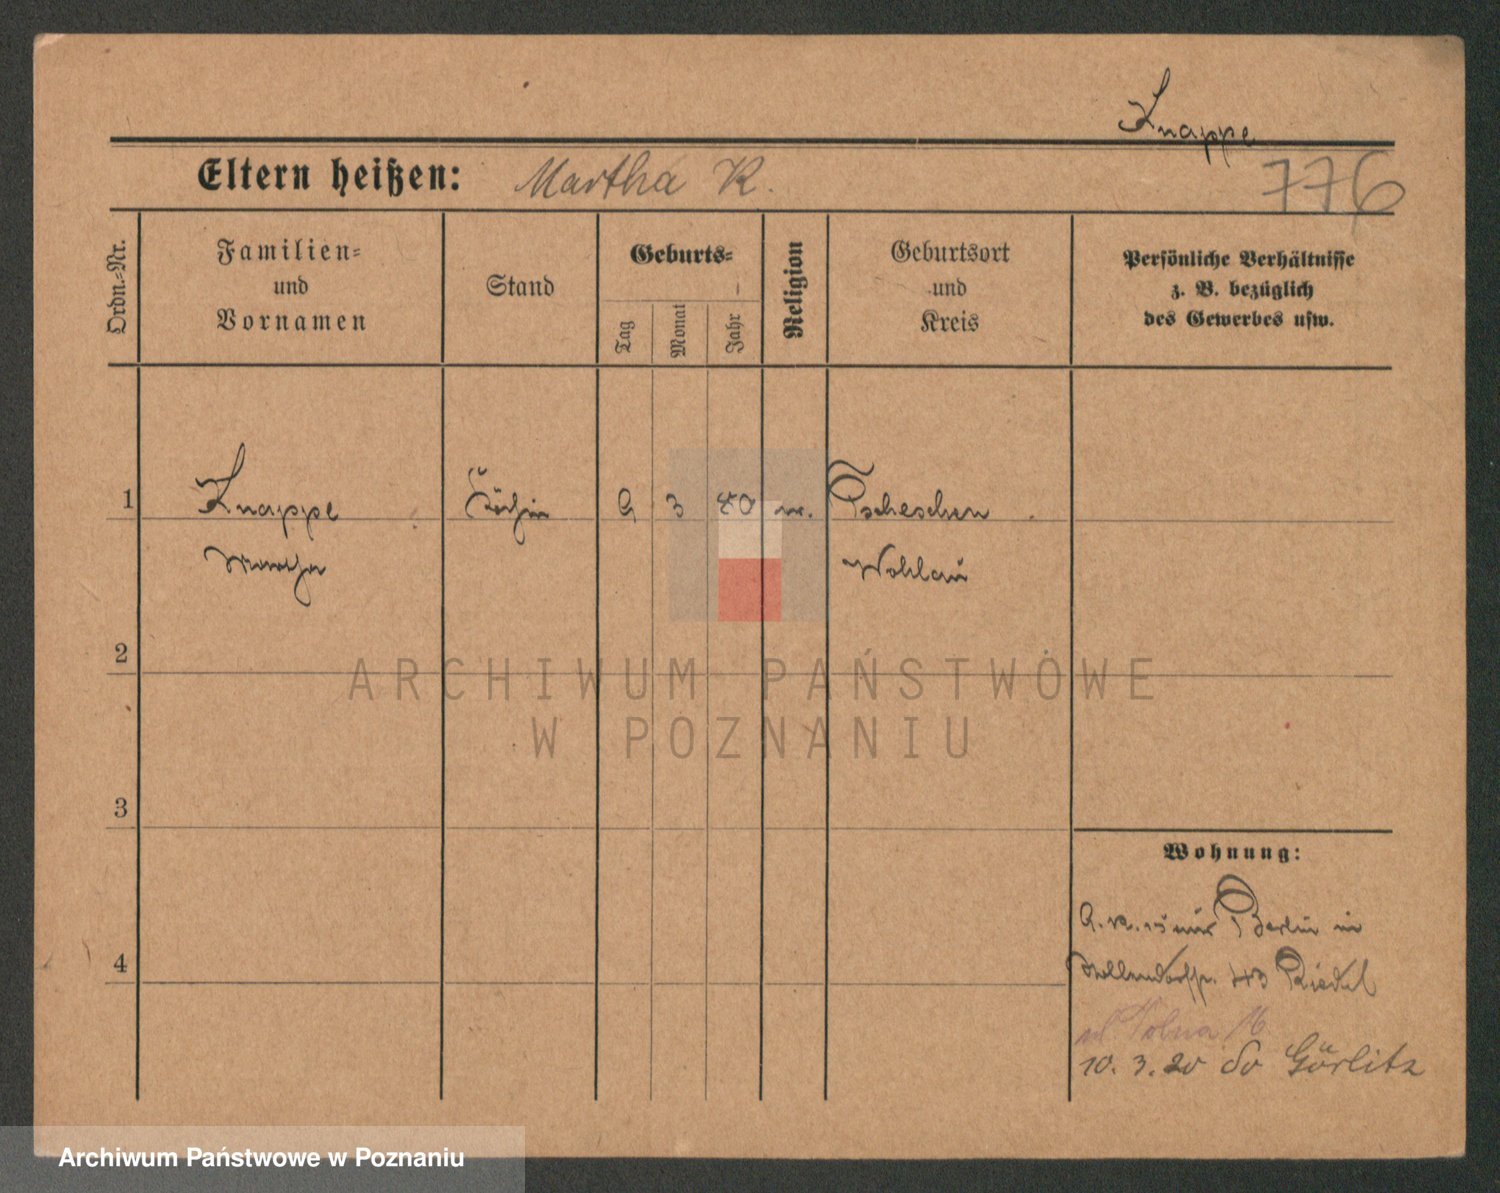 Knappe
Eltern heißen: Martha K.
776
Ordn.-Nr.
Familien-
und
Vornamen
Stand
Geburts-
Tag
Monat
Jahr
Religion
Geburtsort
und
Kreis
Persönliche Verhältnisse
z. B. bezüglich
des Gewerbes usw.
1
Knappe
Köchin
9
3
80
ev.
Tscheschen
Martha
Wohlau
ARCHIWUM PAŃSTWOWE
W POZNANIU
2
3
4
Wohnung:
Berlin in
43 Riedel
ul. Polna 16
10. 3. 20 Görlitz
Archiwum Państwowe w Poznaniu